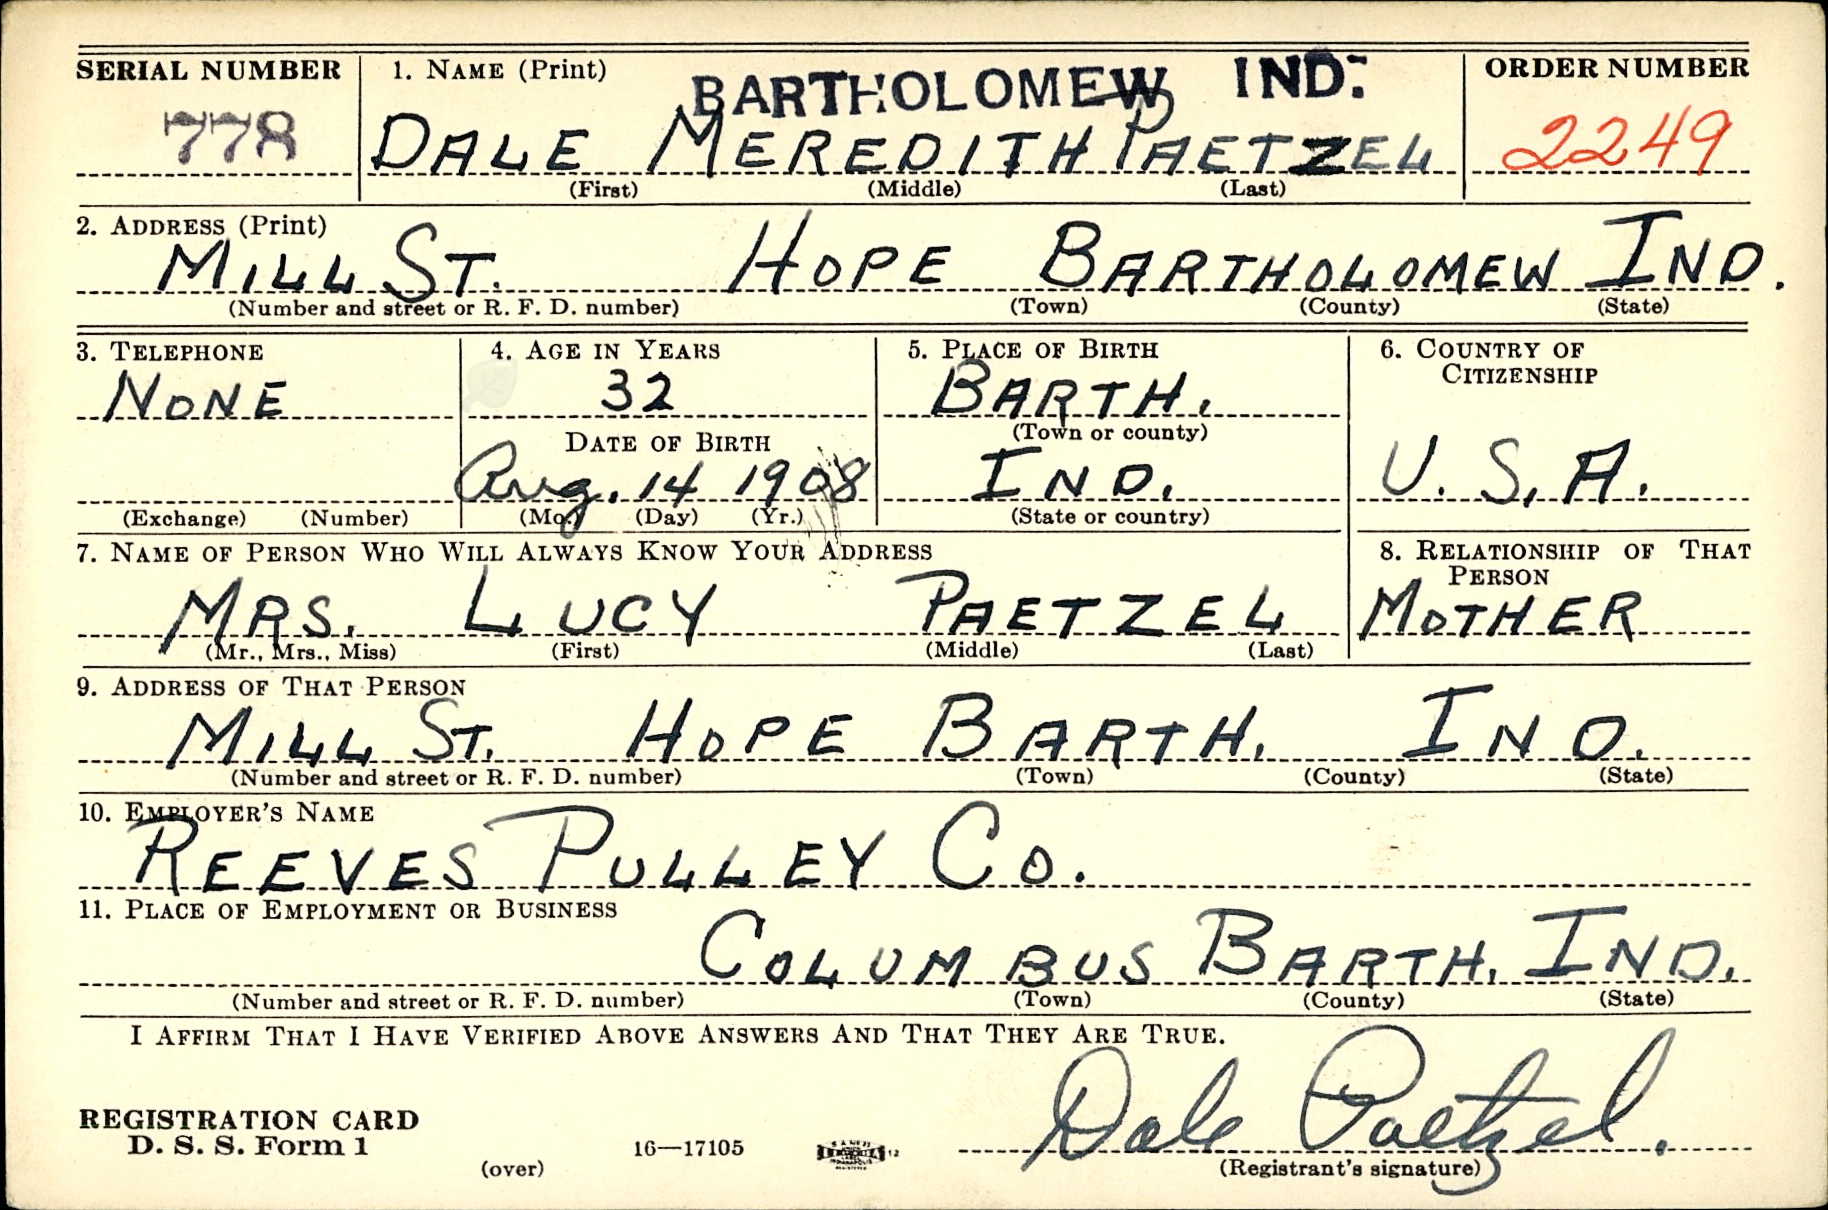 SERIAL NUMBER 1. NAME (Print) BARTHOLOMEW IND. ORDER NUMBER
778 DALE MEREDITH PAETZEL 2249
(First) (Middle) (Last)
2. ADDRESS (Print)
MILL ST. HOPE BARTHOLOMEW IND.
(Number and street or R. F. D. number) (Town) (County) (State)
3. TELEPHONE 4. AGE IN YEARS 5. PLACE OF BIRTH 6. COUNTRY OF
CITIZENSHIP
NONE 32 BARTH.
DATE OF BIRTH (Town or county)
Aug. 14 1908 IND. U. S. A.
(Exchange) (Number) (Mo.) (Day) (Yr.) (State or country)
7. NAME OF PERSON WHO WILL ALWAYS KNOW YOUR ADDRESS 8. RELATIONSHIP OF THAT
PERSON
MRS. LUCY PAETZEL MOTHER
(Mr., Mrs., Miss) (First) (Middle) (Last)
9. ADDRESS OF THAT PERSON
MILL ST. HOPE BARTH. IND.
(Number and street or R. F. D. number) (Town) (County) (State)
10. EMPLOYER'S NAME
REEVES PULLEY CO.
11. PLACE OF EMPLOYMENT OR BUSINESS
COLUMBUS BARTH. IND.
(Number and street or R. F. D. number) (Town) (County) (State)
I AFFIRM THAT I HAVE VERIFIED ABOVE ANSWERS AND THAT THEY ARE TRUE.
REGISTRATION CARD
D. S. S. Form 1 16—17105 12 Dale Paetzel.
(over) (Registrant's signature)